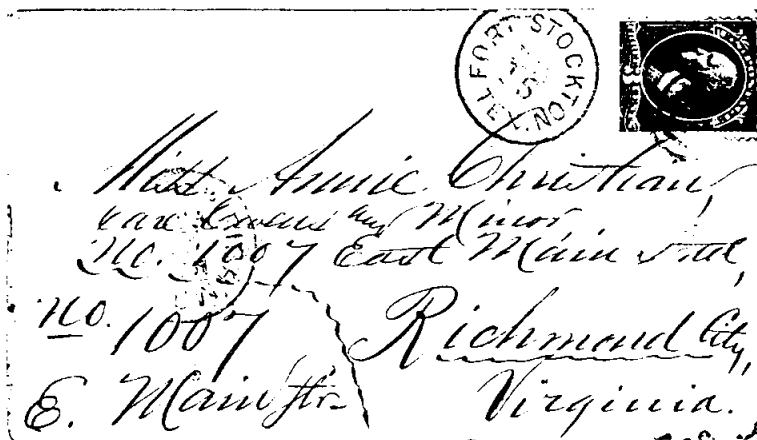 FORT STOCKTON, TEX.
Miss Annie Christian,
Care Owens and Minor
No. 1007 East Main Street,
No. 1007
Richmond City,
E. Main Str.
Virginia.